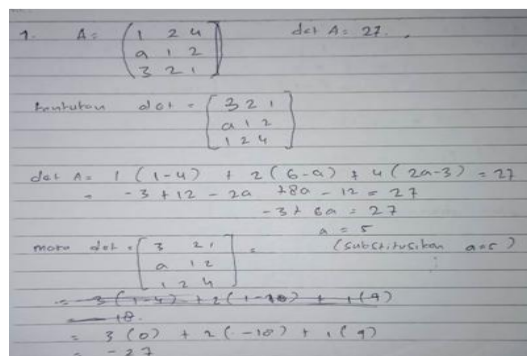 1. A = ( 1 2 4 det A = 27.
a 1 2
3 2 1 )
tentukan det = [ 3 2 1
a 1 2
1 2 4 ]
det A = 1 (1-4) + 2 (6-a) + 4 (2a-3) = 27
= -3 + 12 - 2a + 8a - 12 = 27
-3 + 6a = 27
a = 5
maka det = [ 3 2 1 = (substitusikan a=5)
a 1 2
1 2 4 ]
= 3 (0) + 2 (-18) + 1 (9)
= -27